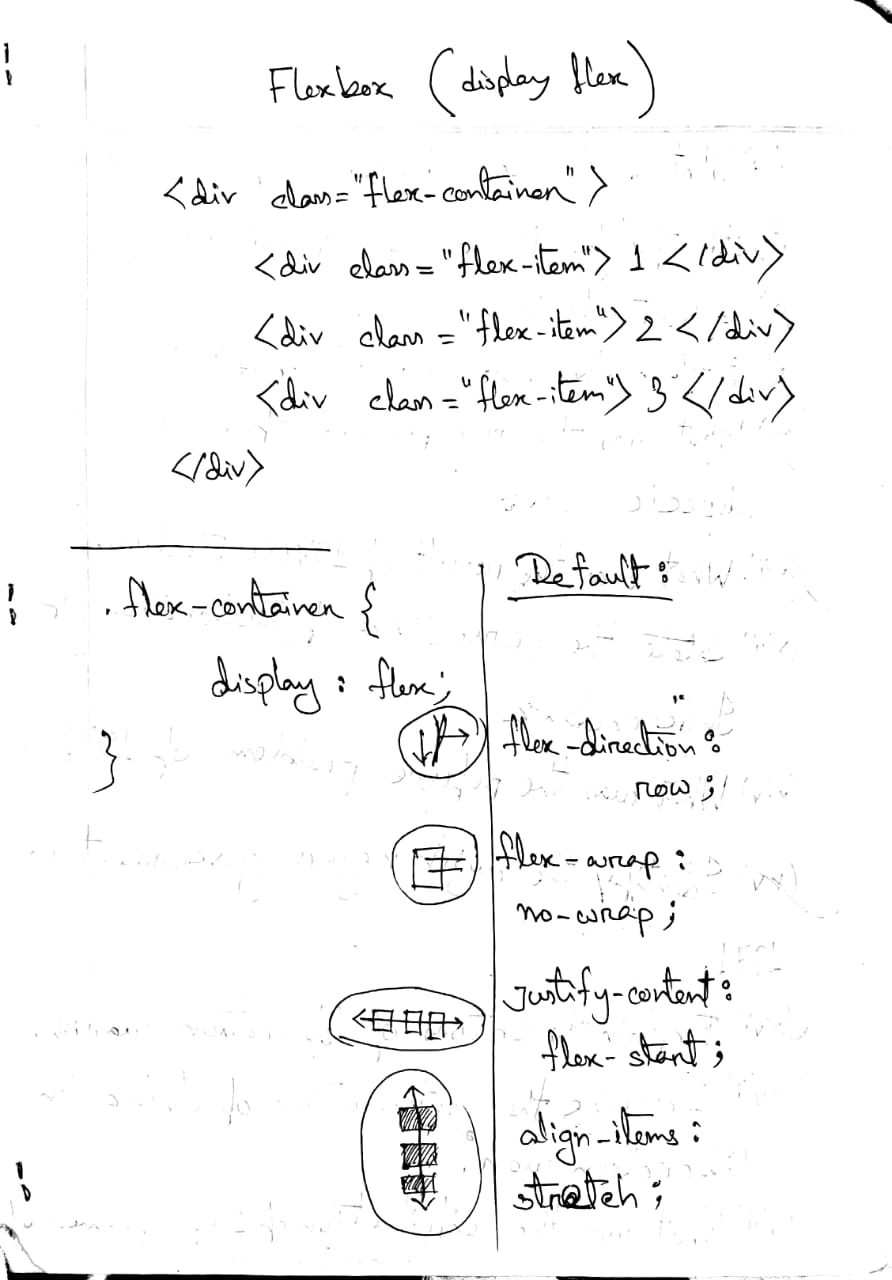 Flexbox (display flex)
<div class="flex-container">
<div class="flex-item"> 1 </div>
<div class="flex-item"> 2 </div>
<div class="flex-item"> 3 </div>
</div>
.flex-container {
display: flex;
}
Default:
flex-direction:
row;
flex-wrap:
no-wrap;
justify-content:
flex-start;
align-items:
stretch;